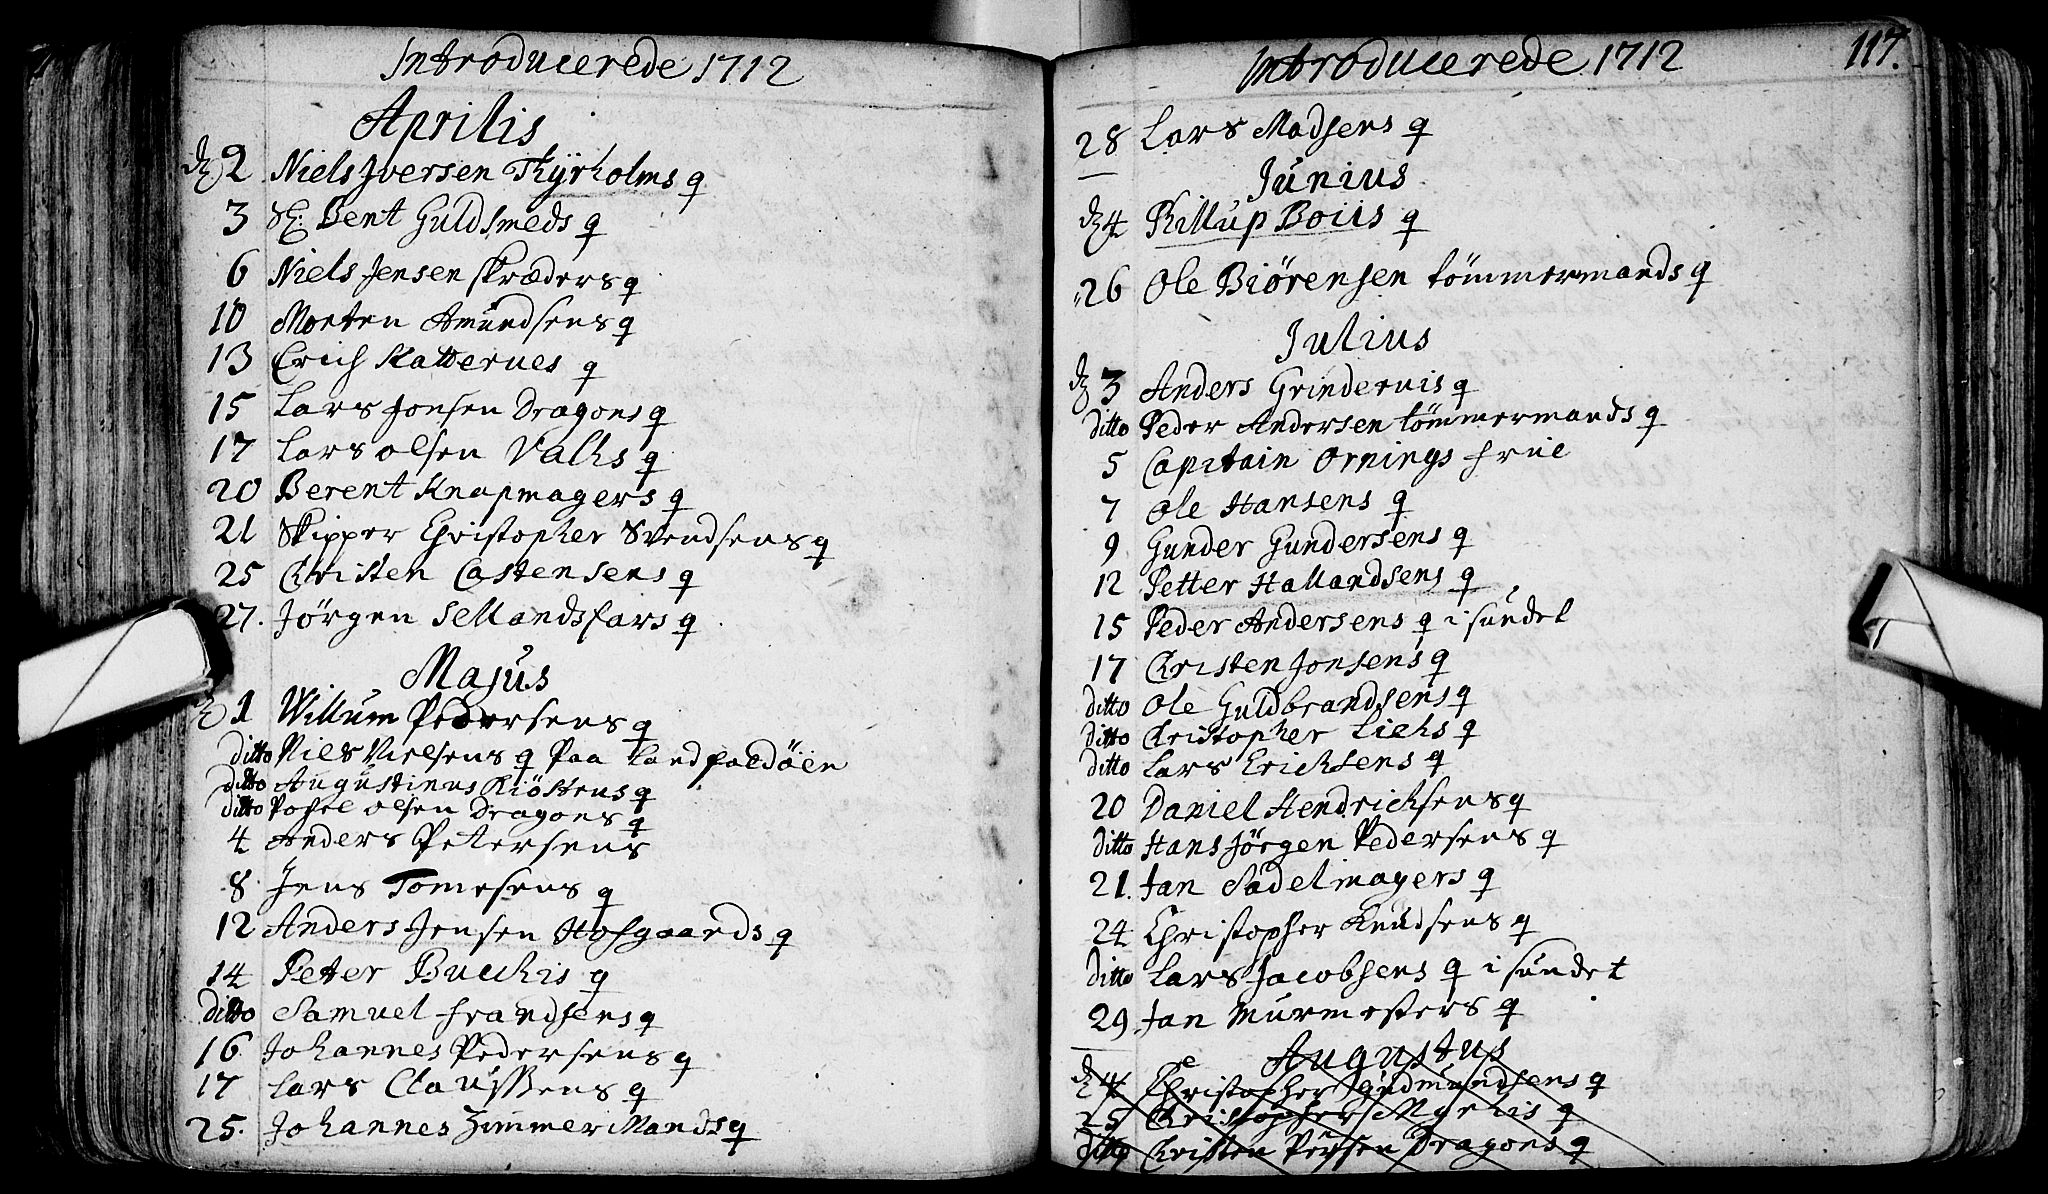 Introducerede 1712
Aprilis
dz 2 Niels Iversen Thyrholms q
3 Sl: Bent Guldsmeds q
6 Niels Jensen skræders q
10 Morten Amundsens q
13 Erich Katterues q
15 Lars Jonsen Dragons q
17 Lars olsen Valks q
20 Berent Knapmagers q
21 Skipper Christopher Svendsens q
25 Christen Castensens q
27. Jörgen Sellandsfars q
Majus
dz 1 Willum Pedersens q
ditto Niels Nielsens q Paa Landfaldöen
ditto Augustinus Kiöstens q
ditto Pofvel olsen Dragons q
4 Anders Petersens
8 Jens Tomesens q
12 Anders Jensen Hofgaards q
14 Peter Buckis q
ditto Samuel frandsens q
16 Johannes Pedersens q
17 Lars Claussens q
25. Johannes Zimmer Mands q
Introducerede 1712 117.
28 Lars Madsens q
Junius
dz 4 Phillup Boiis q
26 Ole Biörensen tömmermands q
Julius
dz 3 Anders Grinderuis q
ditto Peder Andersen tömmermands q
5 Capitain Ornings frue
7 Ole Hansens q
9 Gunder Gundersens q
12 Petter Hallandsens q
15 Peder Andersens q i sundet
17 Christen Jonsens q
ditto Ole Guldbrandsens q
ditto Christopher Lieks q
ditto Lars Ericksens q
20 Daniel Hendricksens q
ditto Hans Jörgen Pedersens q
21. Jan Sadelmagers q
24 Christopher Knudsens q
ditto Lars Jacobsens q i sundet
29 Jan Murmesters q
Augustus
dz 4 Christopher Gudmundsens q
25 Christopher Myrhis q
ditto Christen Persen Dragons q